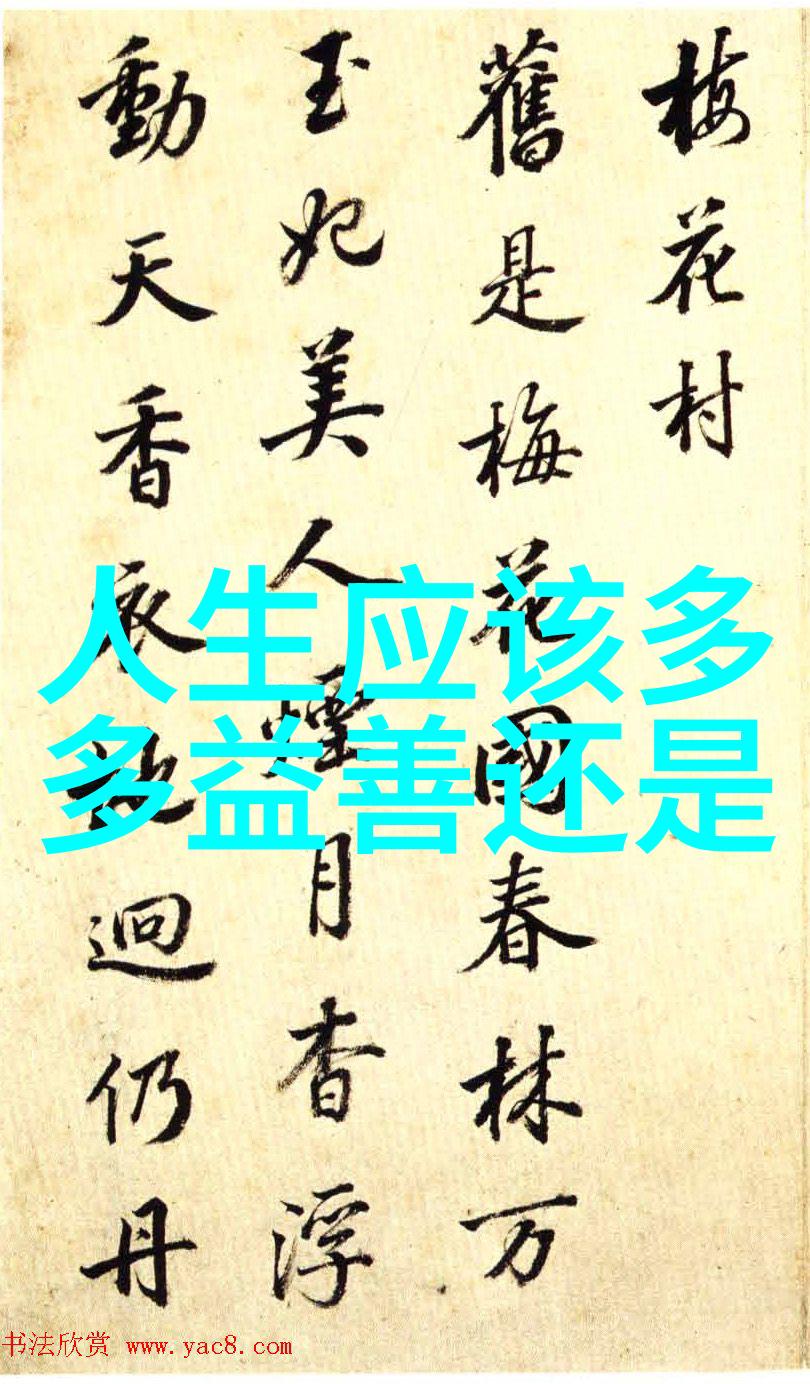 梅花村
舊是梅花國春林万
玉妃美人煙月杳浮
動天香衣逈仍丹
人生应该多
多益善还是
书法欣赏 www.yac8.com